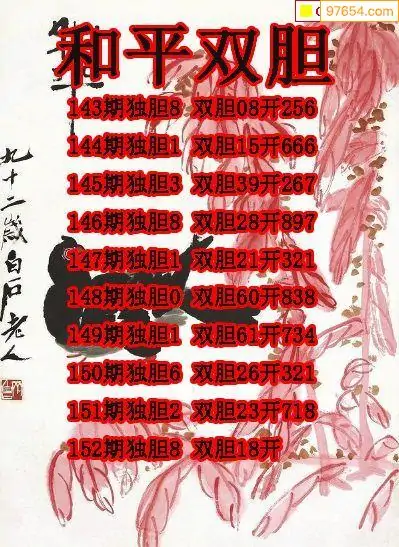 97654.com
和平双胆
143期独胆8 双胆08开256
144期独胆1 双胆15开666
145期独胆3 双胆39开267
146期独胆8 双胆28开897
147期独胆1 双胆21开321
148期独胆0 双胆60开838
149期独胆1 双胆61开734
150期独胆6 双胆26开321
151期独胆2 双胆23开718
152期独胆8 双胆18开
九十二歲白石老人